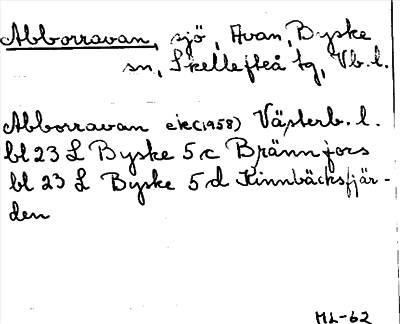 Abborravan, sjö, Avan, Byske
sn, Skellefteå tg, Vb.l.
Abborravan ek(1958) Västerb. l.
bl 23 L Byske 5 c Brännfors
bl 23 L Byske 5 d Kinnbäcksfjär-
den
ML-62